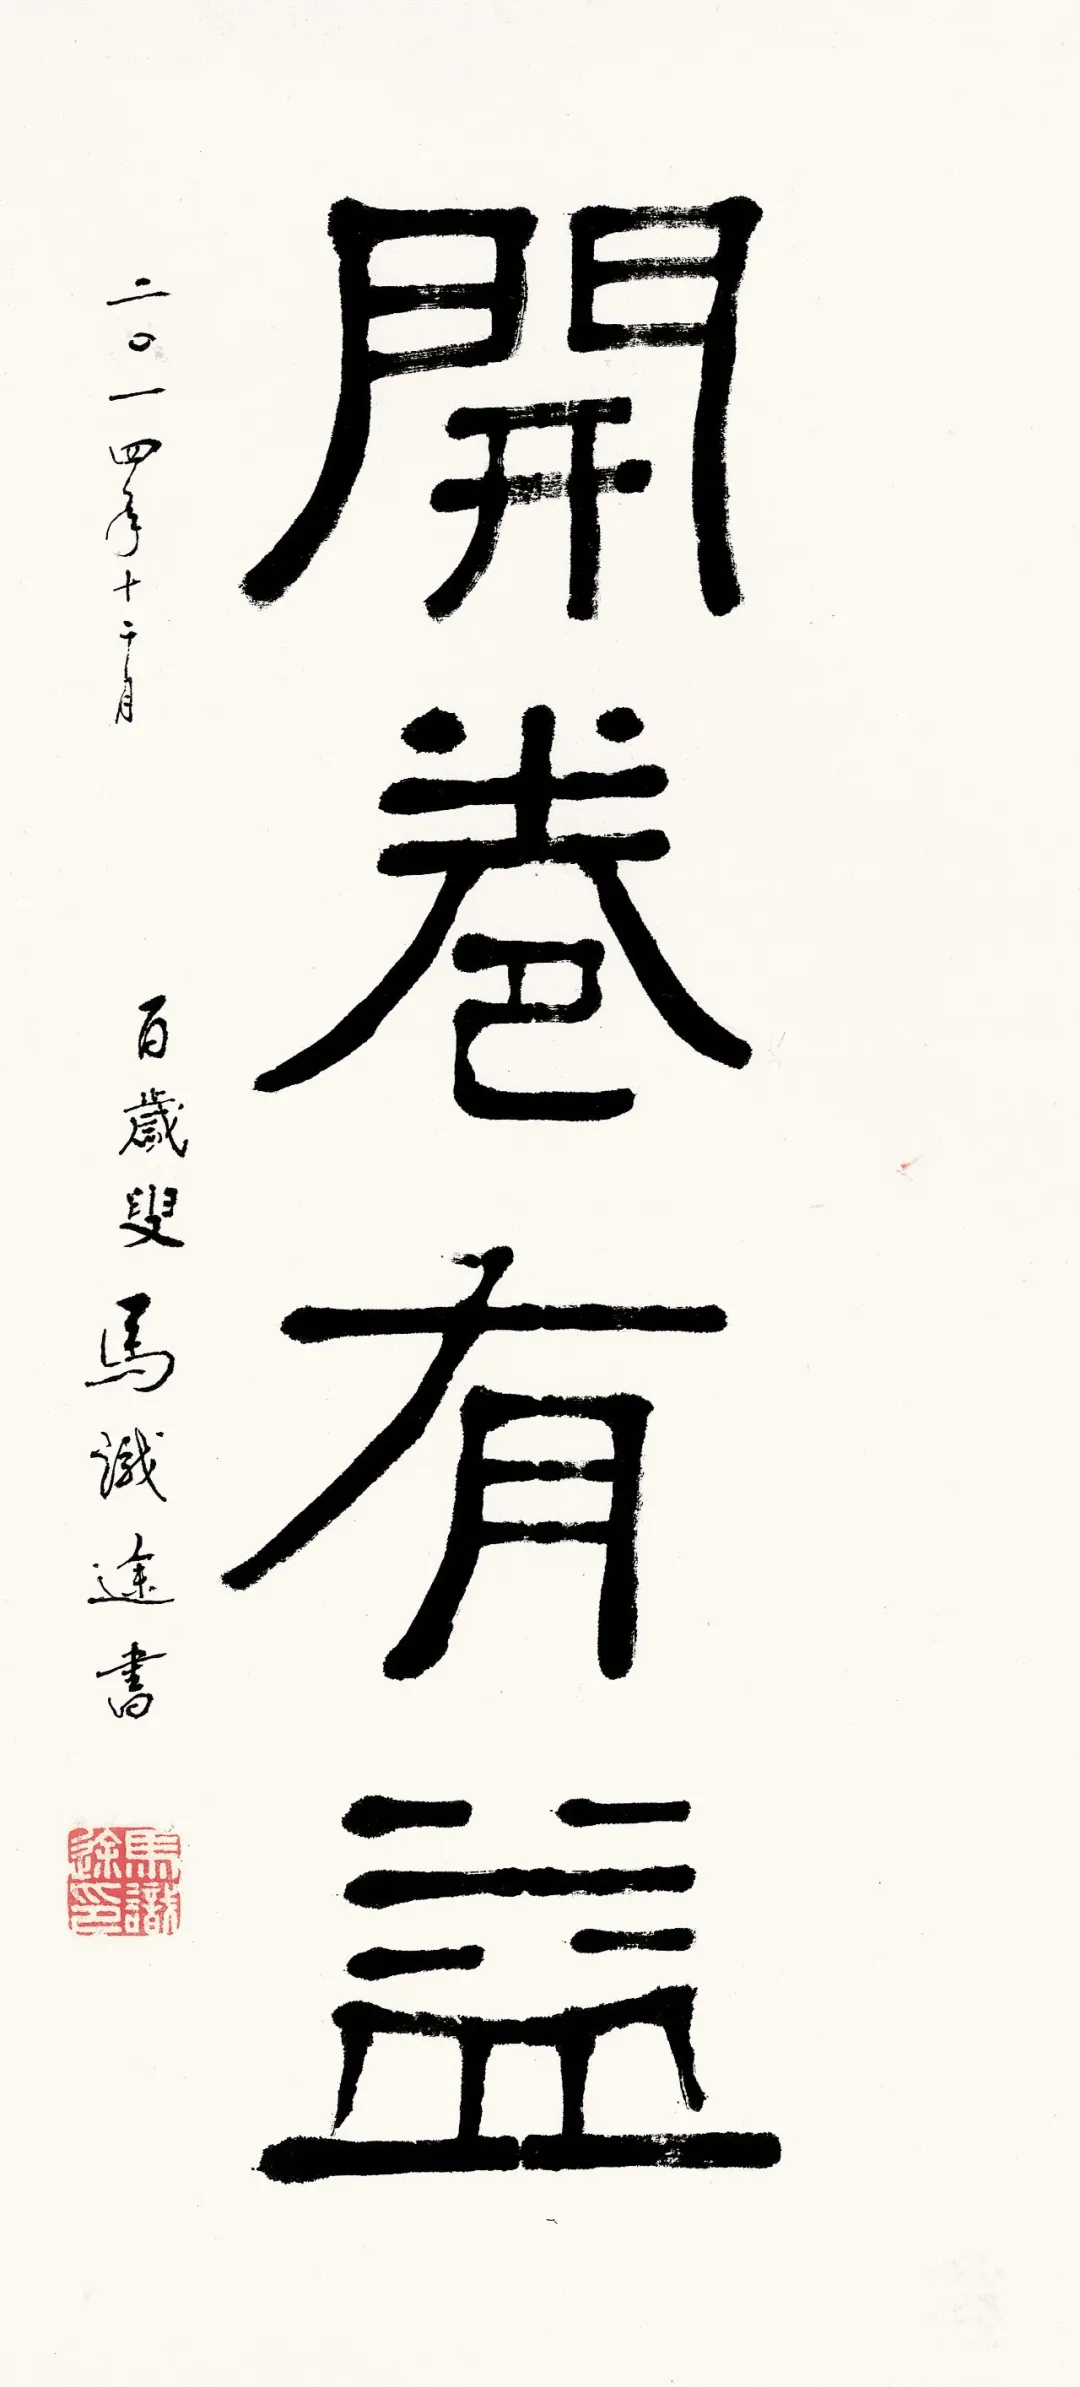 開卷有益
二〇一四年十二月
百歲叟馬識途書
馬識途印